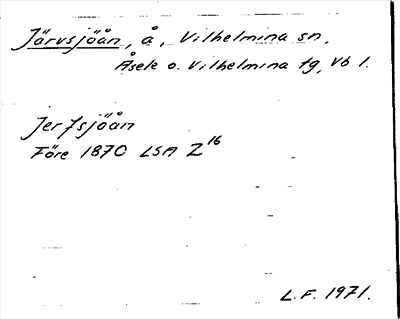 Järvsjöån, å, Vilhelmina sn.
Åsele o. Vilhelmina tg, Vb. l.
Jerfsjöån
Före 1870 LSA Z16
L.F. 1971.